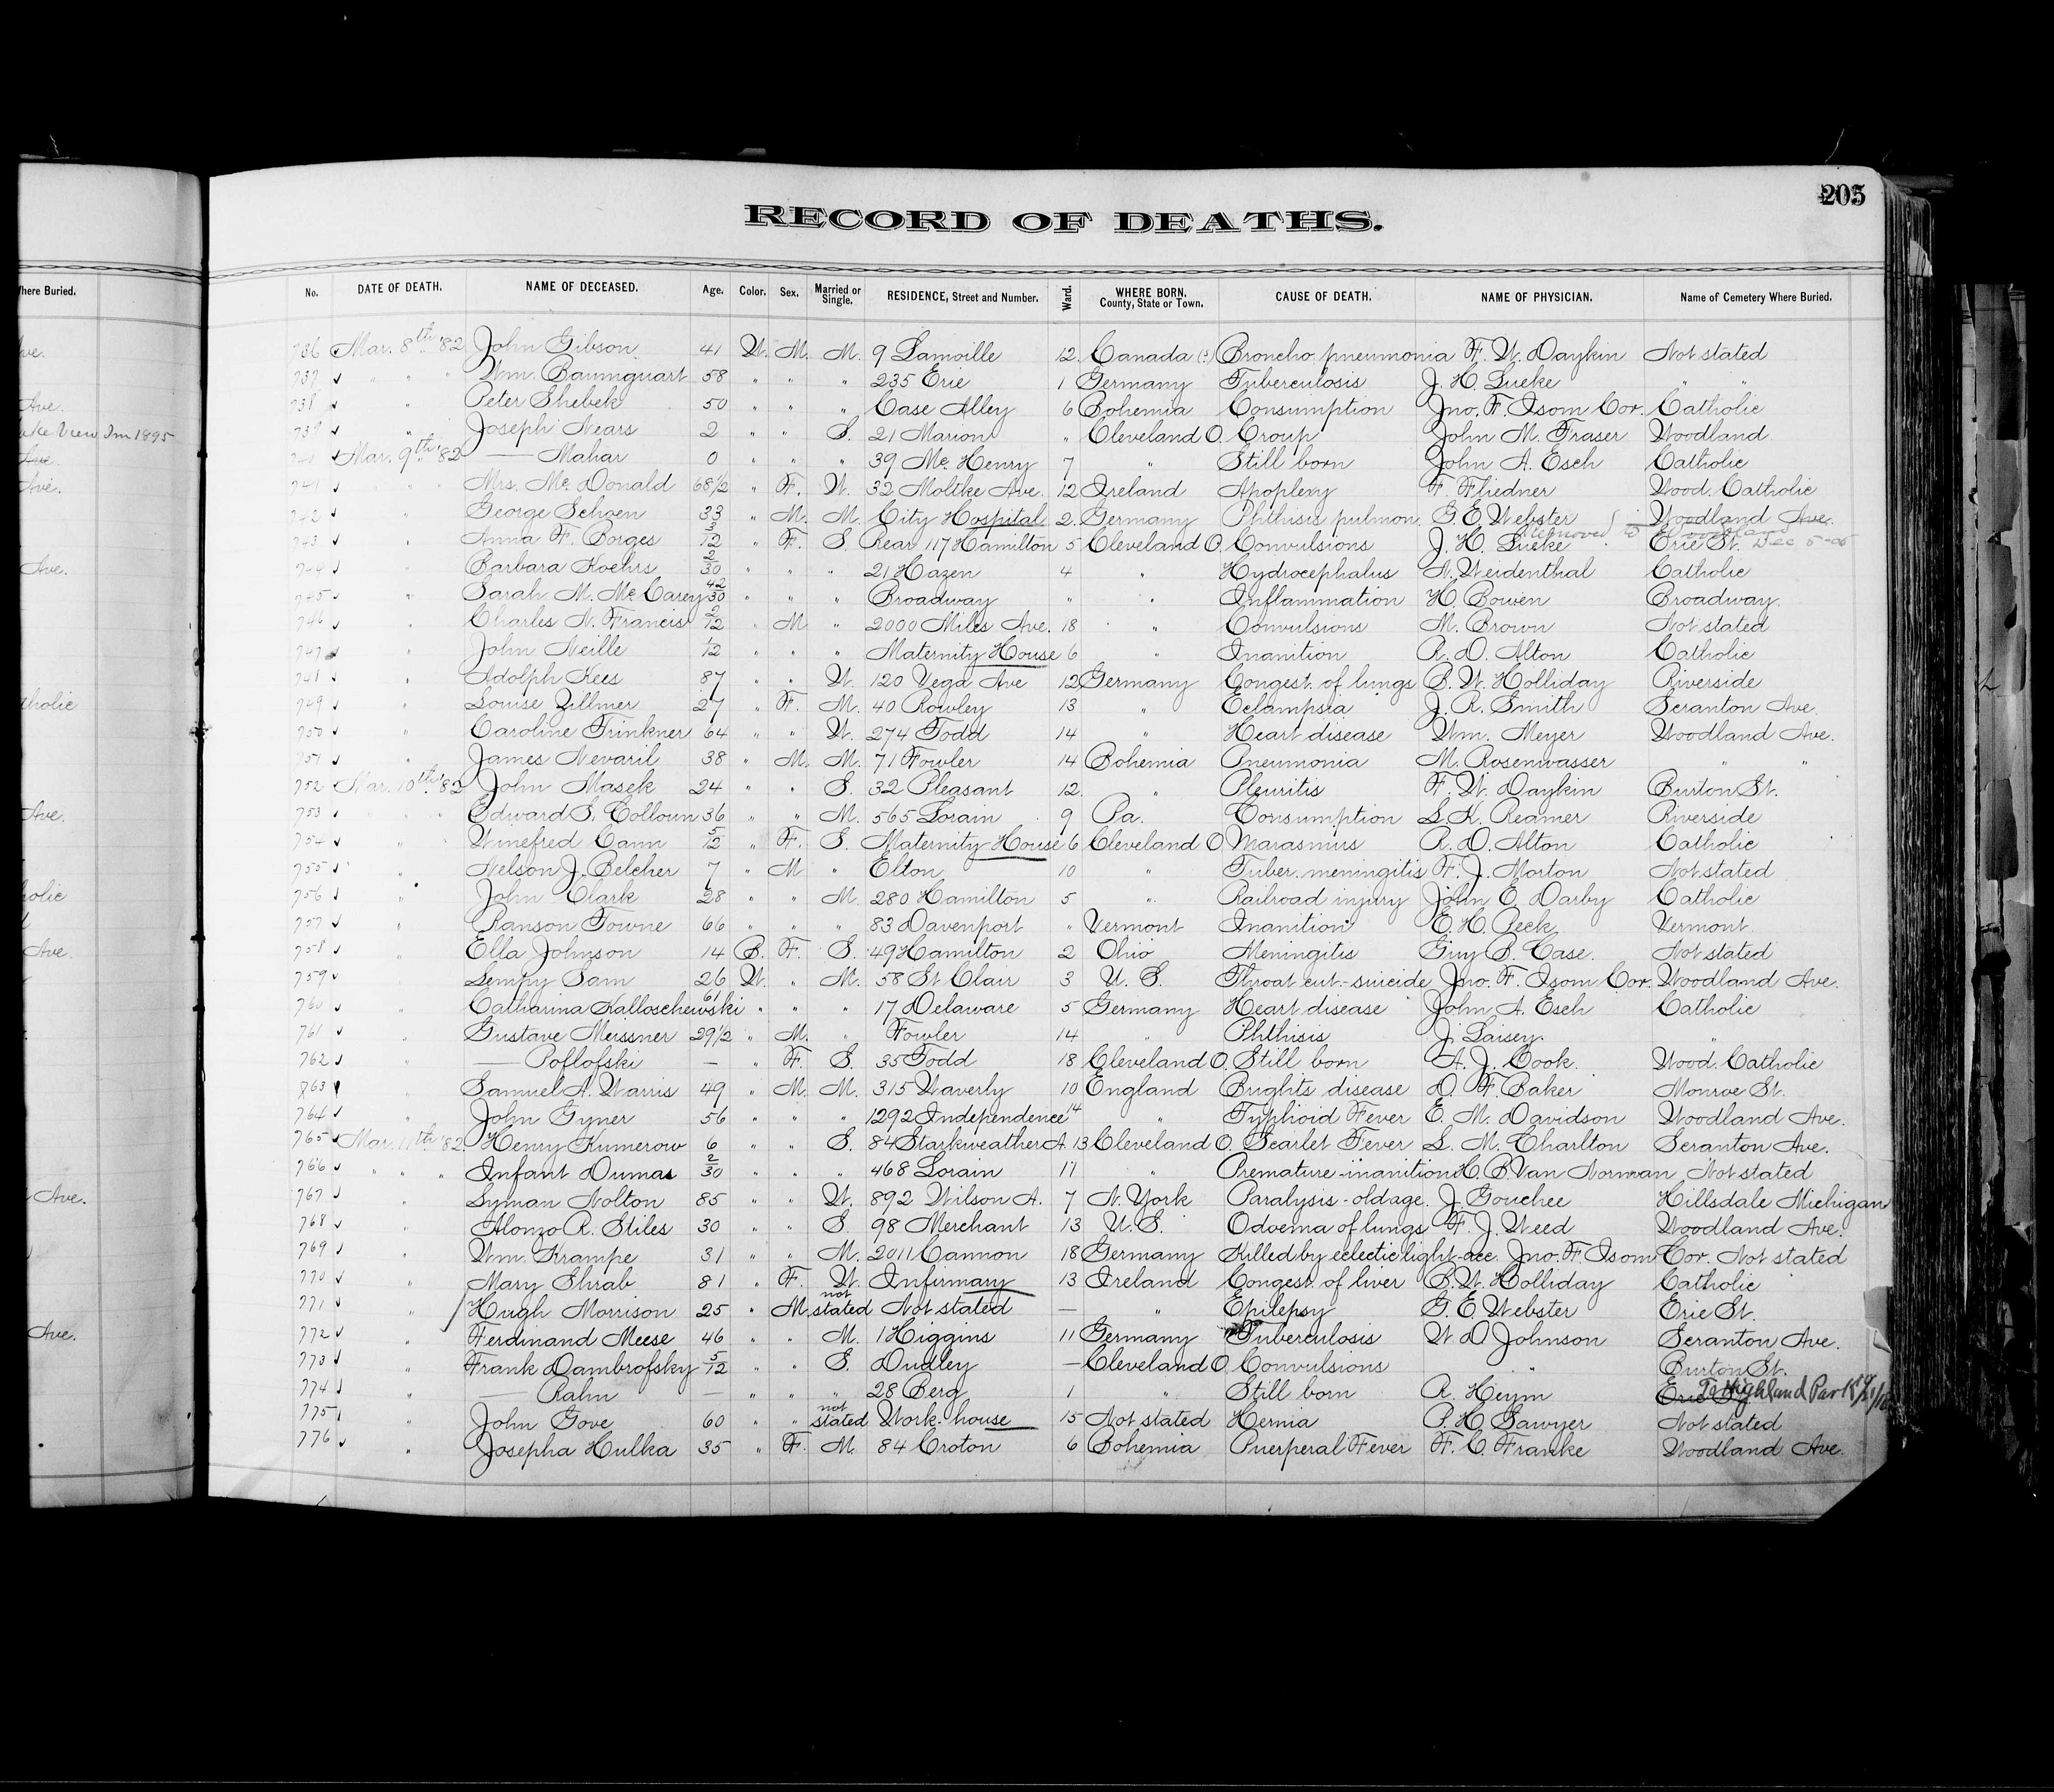 205
RECORD OF DEATHS.
here Buried.
No. DATE OF DEATH. NAME OF DECEASED. Age. Color. Sex. Married or Single. RESIDENCE, Street and Number. Ward. WHERE BORN. County, State or Town. CAUSE OF DEATH. NAME OF PHYSICIAN. Name of Cemetery Where Buried.
736 Mar. 8th '82 John Gibson 41 W. M. M. 9 Lamoille 12. Canada (?) Broncho pneumonia F. W. Daykin Not stated
737 " " " Wm. Baumguart 58 " " " 235 Erie 1 Germany Tuberculosis J. H. Lueke " "
738 " Peter Shebek 50 " " " Case Alley 6 Bohemia Consumption Jno. F. Isom Cor. Catholic
739 " Joseph Nears 2 " " S. 21 Marion " Cleveland O. Croup John M. Fraser Woodland
740 Mar. 9th '82 — Mahar 0 " " " 39 Mc Henry 7 " Still born John A. Esch Catholic
741 " " Mrs. Mc Donald 68 1/2 " F. W. 32 Moltke Ave. 12 Ireland Apoplexy F. Fliedner Wood. Catholic
742 " George Schoen 33 " M. M. City Hospital 2. Germany Phthisis pulmon. G. E. Webster Woodland Ave.
743 " Anna F. Borges 3/12 " F. S. Rear 117 Hamilton 5 Cleveland O. Convulsions J. H. Lueke Erie St. Removed to Dec 5-05
744 " Barbara Koehrs 2/30 " " " 21 Hazen 4 " Hydrocephalus N. Weidenthal Catholic
745 " Sarah M. Mc Carey 42/30 " " " Broadway " " Inflammation H. Bowen Broadway
746 " Charles N. Francis 2/12 " M " 2000 Miles Ave. 18 " Convulsions M. Brown Not stated
747 " John Neille 1/12 " " " Maternity House 6 " Inanition R. D. Alton Catholic
748 " Adolph Kees 87 " " W. 120 Vega Ave 12 Germany Congest. of lungs B. W. Holliday Riverside
749 " Louise Zillmer 27 " F. M. 40 Rowley 13 " Eclampsia J. R. Smith Scranton Ave.
750 " Caroline Trinkner 64 " " W. 274 Todd 14 " Heart disease Wm. Meyer Woodland Ave.
751 James Nevaril 38 " M. M. 71 Fowler 14 Bohemia Pneumonia M. Rosenwasser " "
752 Mar. 10th '82 John Masek 24 " " S. 32 Pleasant 12. " Pleuritis F. W. Daykin Burton St.
753 " " " Edward S. Colloun 36 " " M. 565 Lorain 9 Pa. Consumption L. K. Reamer Riverside
754 " " Winefred Cann 5/12 " F. S. Maternity House 6 Cleveland O Marasmus R. D. Alton Catholic
755 " Nelson J. Belcher 7 " M " Elton 10 " Tuber. meningitis F. J. Morton Not stated
756 " John Clark 28 " " M. 280 Hamilton 5 " Railroad injury John E. Darby Catholic
757 " Ranson Towne 66 " " " 83 Davenport " Vermont Inanition E. H. Peck Vermont
758 " Ella Johnson 14 B. F. S. 49 Hamilton 2 Ohio Meningitis Guy B. Case. Not stated
759 " Lempy Sam 26 W. " M. 58 St Clair 3 U. S. Throat cut-suicide Jno. F. Isom Cor. Woodland Ave.
760 " Catharina Kalloschewski 61 " " " 17 Delaware 5 Germany Heart disease John A. Esch Catholic
761 " Gustave Meissner 29 1/2 " M. " Fowler 14 " Phthisis J. Laisey "
762 " — Poflofski — " F. S. 35 Todd 18 Cleveland O. Still born A. J. Cook Wood. Catholic
763 Samuel A. Warris 49 " M. M. 315 Waverly 10 England Brights disease D. F. Baker Monroe St.
764 " John Gyner 56 " " " 1292 Independence 14 " Typhioid Fever E. M. Davidson Woodland Ave.
765 Mar. 11th '82. Henry Kumerow 6 " " S. 84 Starkweather A. 13 Cleveland O. Scarlet Fever L. M. Charlton Scranton Ave.
766 " " " Infant Dumas 2/30 " " " 468 Lorain 11 " Premature-inanition H. B. Van Norman Not stated
767 " Lyman Nolton 85 " " W. 892 Wilson A. 7 N. York Paralysis-old age J. Gouchee Hillsdale Michigan
768 " Alonzo R. Stiles 30 " " S. 98 Merchant 13 U. S. Odoema of lungs F. J. Weed Woodland Ave.
769 " Wm. Krampe 31 " " M. 2011 Cannon 18 Germany Killed by eclectic light-acc. Jno. F. Isom Cor. Not stated
770 " Mary Shrab 81 " F. W. Infirmary 13 Ireland Congest. of liver B. W. Holliday Catholic
771 " Hugh Morrison 25 " M. not stated Not stated — " Epilepsy G. E. Webster Erie St.
772 " Ferdinand Meese 46 " " M. 1 Higgins 11 Germany Tuberculosis W. D. Johnson Scranton Ave.
773 " Frank Dambrofsky 5/12 " " S. Dudley — Cleveland O. Convulsions " Burton St.
774 " — Rahn — " " " 28 Berg 1 " Still born R. Heym Erie St. To Highland Park
775 " John Gove 60 " " not stated Work-house 15 Not stated Hernia P. H. Sawyer Not stated
776 " Josepha Hulka 35 " F. M 84 Croton 6 Bohemia Puerperal Fever F. C. Franke Woodland Ave.